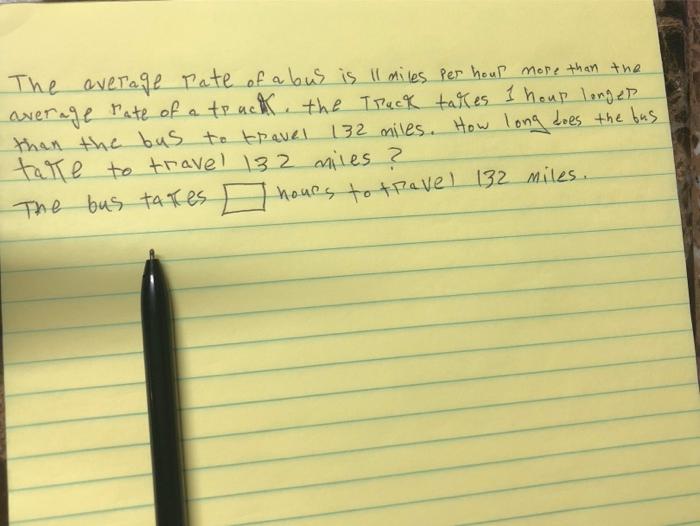 The average rate of a bus is 11 miles per hour more than the
average rate of a truck. the Truck takes 1 hour longer
than the bus to travel 132 miles. How long does the bus
take to travel 132 miles?
The bus takes hours to travel 132 miles.